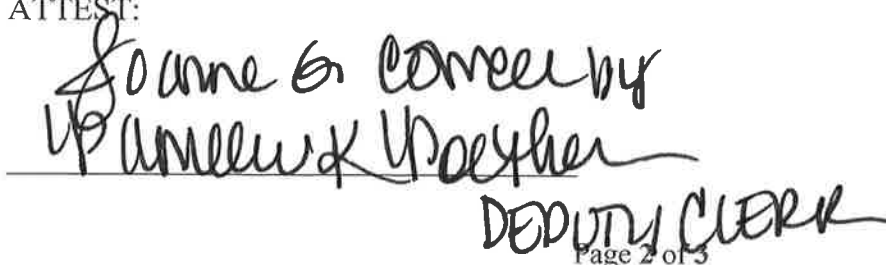 ATTEST:
Joanne G Comcer by
Pamela K
DEPUTY CLERK
Page 2 of 3